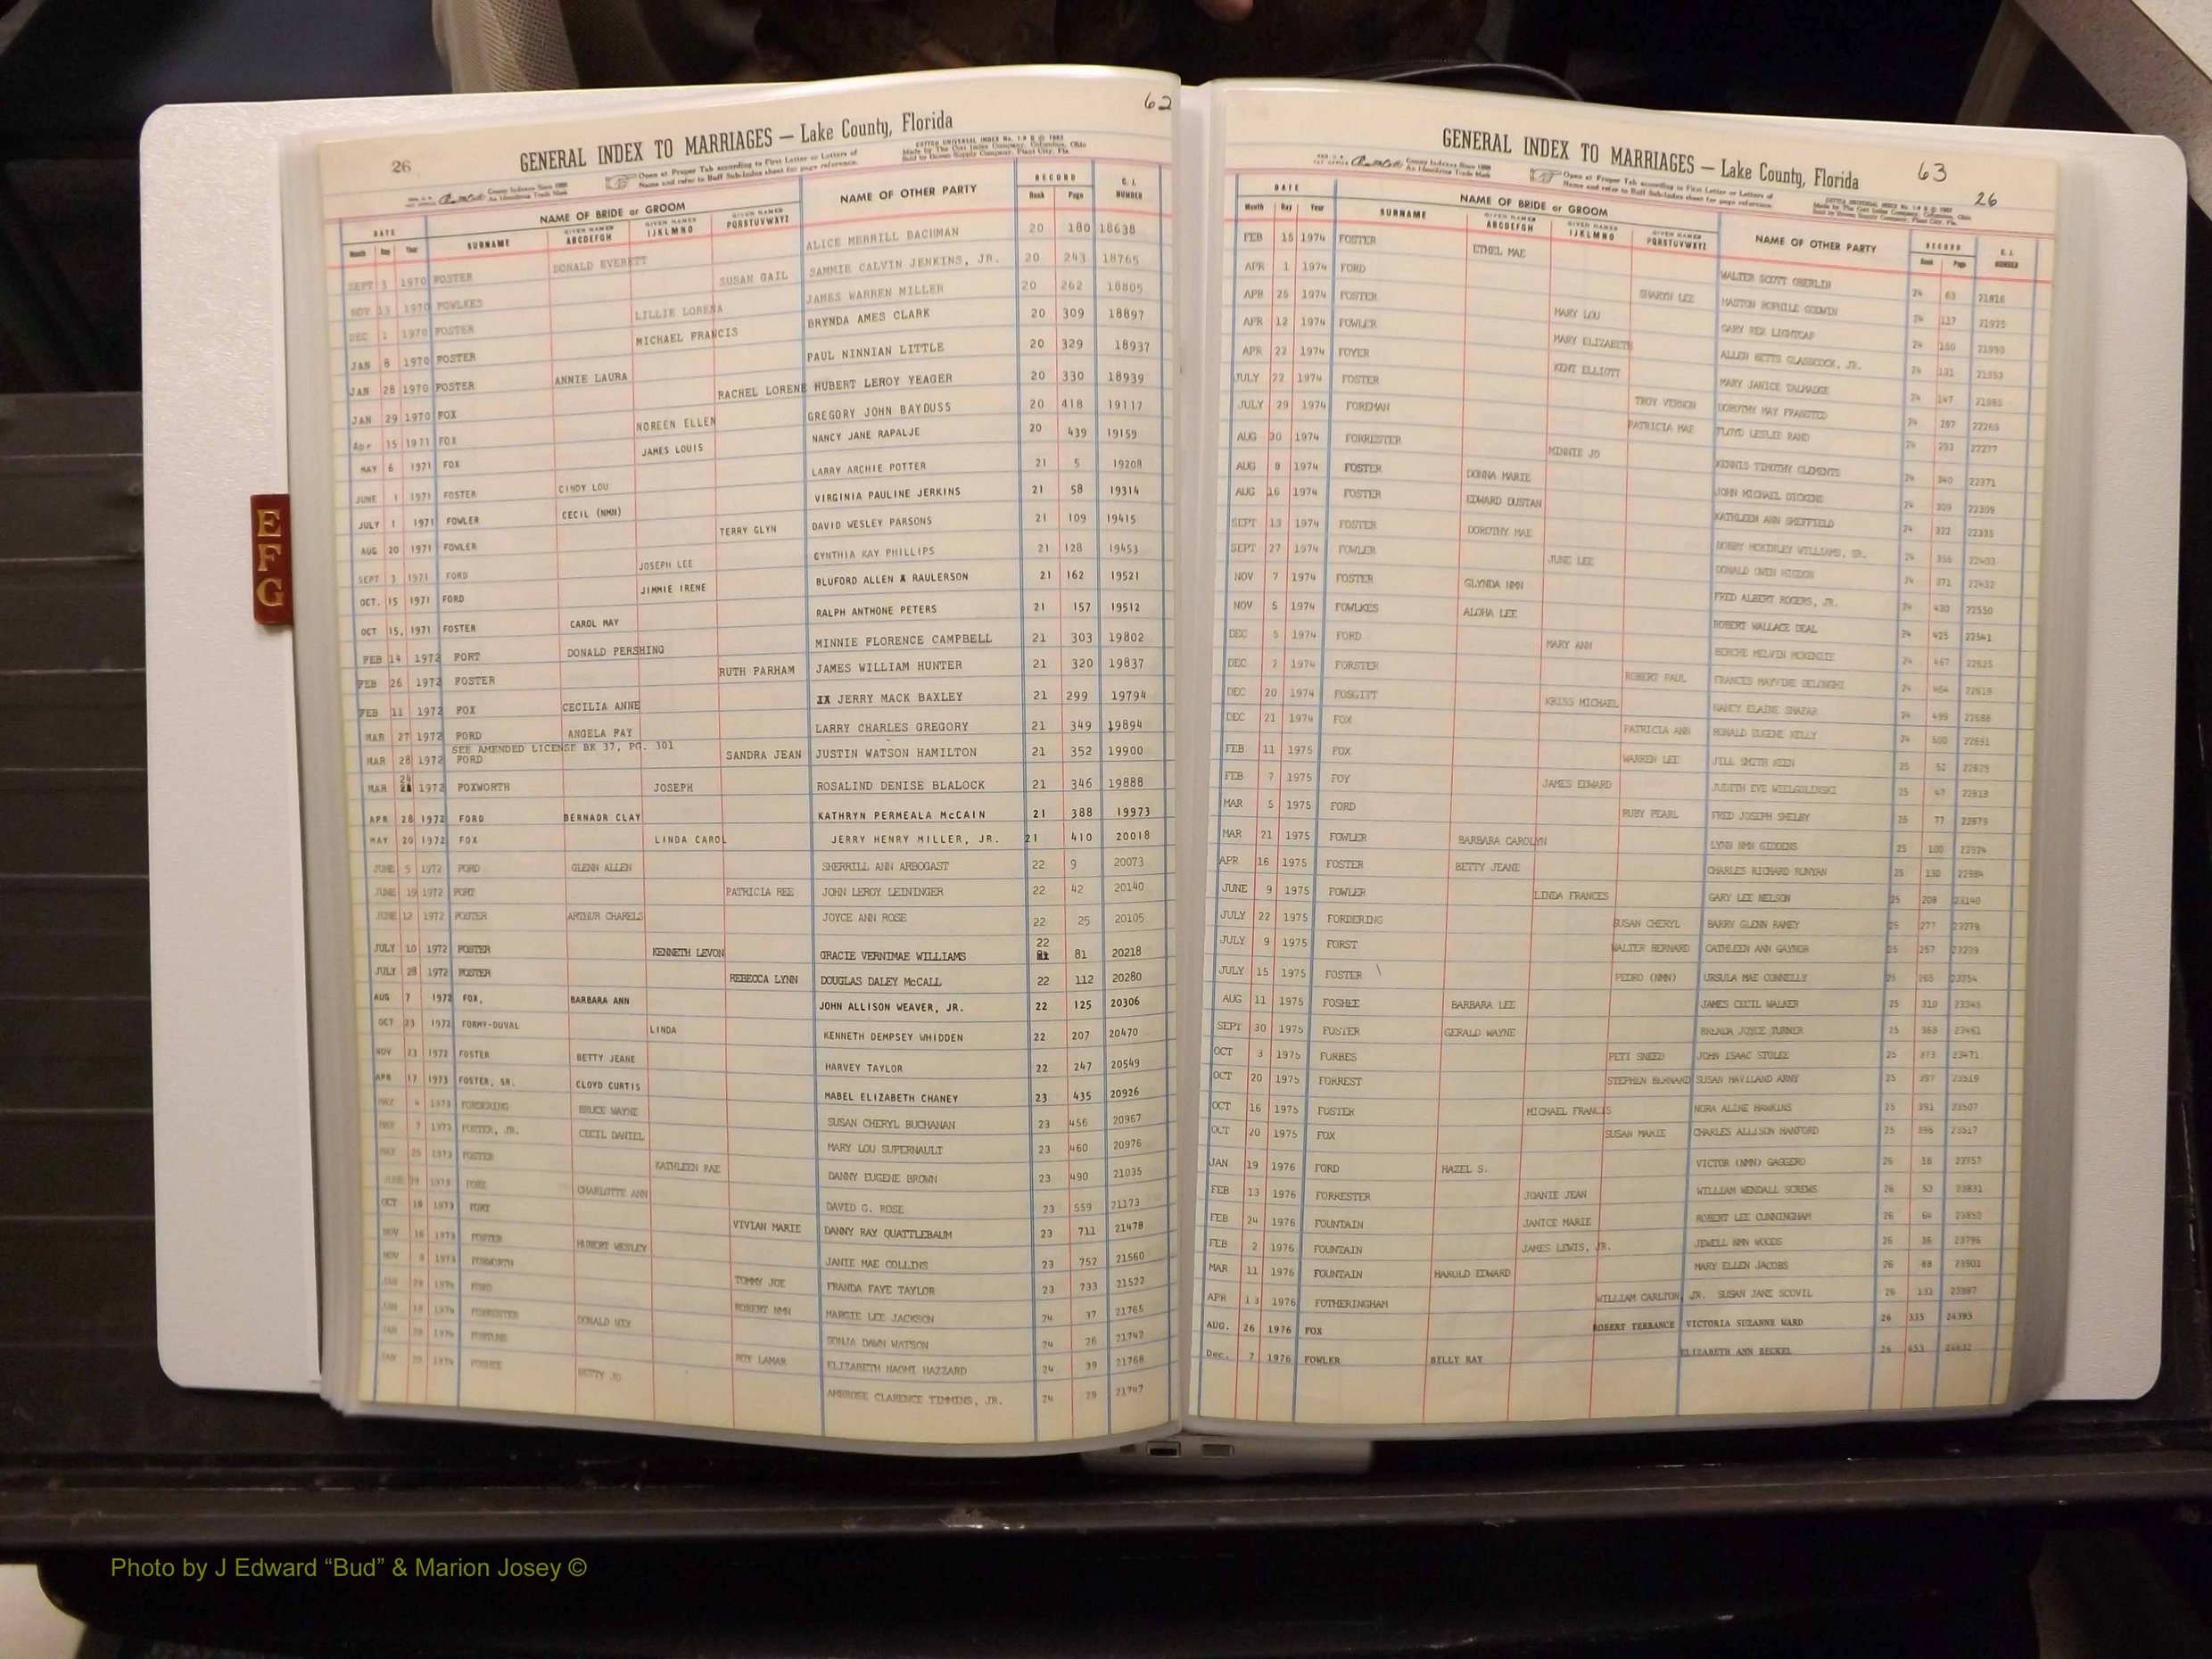 62
26
GENERAL INDEX TO MARRIAGES — Lake County, Florida
Open at Proper Tab according to First Letter or Letters of Name and refer to Buff Sub-Index sheet for page reference.
COTTCO UNIVERSAL INDEX
Made by The Cott Index Company, Columbus, Ohio
Sold by Bowen Supply Company, Plant City, Fla.
DATE NAME OF BRIDE or GROOM NAME OF OTHER PARTY RECORD G. I. NUMBER
Month Day Year SURNAME GIVEN NAMES ABCDEFGH GIVEN NAMES IJKLMNO GIVEN NAMES PQRSTUVWXYZ Book Page
SEPT 3 1970 FOSTER DONALD EVERETT ALICE MERRILL BACHMAN 20 180 18638
NOV 13 1970 FOWLKES SUSAN GAIL SAMMIE CALVIN JENKINS, JR. 20 243 18765
DEC 1 1970 FOSTER LILLIE LORENA JAMES WARREN MILLER 20 262 18805
JAN 8 1970 FOSTER MICHAEL FRANCIS BRYNDA AMES CLARK 20 309 18897
JAN 28 1970 FOSTER ANNIE LAURA PAUL NINNIAN LITTLE 20 329 18937
JAN 29 1970 FOX RACHEL LORENE HUBERT LEROY YEAGER 20 330 18939
Apr 15 1971 FOX NOREEN ELLEN GREGORY JOHN BAYDUSS 20 418 19117
MAY 6 1971 FOX JAMES LOUIS NANCY JANE RAPALJE 20 439 19159
JUNE 1 1971 FOSTER CINDY LOU LARRY ARCHIE POTTER 21 5 19208
JULY 1 1971 FOWLER CECIL (NMN) VIRGINIA PAULINE JERKINS 21 58 19314
AUG 20 1971 FOWLER TERRY GLYN DAVID WESLEY PARSONS 21 109 19415
SEPT 3 1971 FORD JOSEPH LEE CYNTHIA KAY PHILLIPS 21 128 19453
OCT. 15 1971 FORD JIMMIE IRENE BLUFORD ALLEN RAULERSON 21 162 19521
OCT 15, 1971 FOSTER CAROL MAY RALPH ANTHONE PETERS 21 157 19512
FEB 14 1972 FORT DONALD PERSHING MINNIE FLORENCE CAMPBELL 21 303 19802
FEB 26 1972 FOSTER RUTH PARHAM JAMES WILLIAM HUNTER 21 320 19837
FEB 11 1972 FOX CECILIA ANNE JERRY MACK BAXLEY 21 299 19794
MAR 27 1972 FORD ANGELA FAY LARRY CHARLES GREGORY 21 349 19894
SEE AMENDED LICENSE BK 37, PG. 301
MAR 28 1972 FORD SANDRA JEAN JUSTIN WATSON HAMILTON 21 352 19900
MAR 24 1972 FOXWORTH JOSEPH ROSALIND DENISE BLALOCK 21 346 19888
APR 28 1972 FORD BERNADR CLAY KATHRYN PERMEALA McCAIN 21 388 19973
MAY 20 1972 FOX LINDA CAROL JERRY HENRY MILLER, JR. 21 410 20018
JUNE 5 1972 FORD GLENN ALLEN SHERRILL ANN ARBOGAST 22 9 20073
JUNE 19 1972 FORT PATRICIA REE JOHN LEROY LEININGER 22 42 20140
JUNE 12 1972 FOSTER ARTHUR CHARELS JOYCE ANN ROSE 22 25 20105
JULY 10 1972 FOSTER KENNETH LEVON GRACIE VERNIMAE WILLIAMS 22 81 20218
JULY 28 1972 FOSTER REBECCA LYNN DOUGLAS DALEY McCALL 22 112 20280
AUG 7 1972 FOX, BARBARA ANN JOHN ALLISON WEAVER, JR. 22 125 20306
OCT 23 1972 FORMY-DUVAL LINDA KENNETH DEMPSEY WHIDDEN 22 207 20470
NOV 23 1972 FOSTER BETTY JEANE HARVEY TAYLOR 22 247 20549
APR 17 1973 FOSTER, SR. CLOYD CURTIS MABEL ELIZABETH CHANEY 23 435 20926
MAY 4 1973 FORDERING BRUCE WAYNE SUSAN CHERYL BUCHANAN 23 456 20967
MAY 7 1973 FOSTER, JR. CECIL DANIEL MARY LOU SUPERNAULT 23 460 20976
MAY 25 1973 FOSTER KATHLEEN RAE DANNY EUGENE BROWN 23 490 21035
JUNE 29 1973 CHARLOTTE ANN DAVID G. ROSE 23 559 21173
OCT 18 1973 FORT VIVIAN MARIE DANNY RAY QUATTLEBAUM 23 711 21478
NOV 16 1973 FOSTER HUBERT WESLEY JANIE MAE COLLINS 23 752 21560
NOV 8 1973 FOXWORTH TOMMY JOE FRANDA FAYE TAYLOR 23 733 21522
JAN 28 1974 FORD ROBERT NMN MARGIE LEE JACKSON 24 37 21765
JAN 18 1974 FORRESTER DONALD NIX SONJA DAWN WATSON 24 26 21742
JAN 1974 FORTUNE ROY LAMAR ELIZABETH NAOMI HAZZARD 24 39 21768
JAN 1974 FOSHEE BETTY JO AMBROSE CLARENCE TIMMINS, JR. 24 29 21747
GENERAL INDEX TO MARRIAGES — Lake County, Florida
63
26
Open at Proper Tab according to First Letter or Letters of Name and refer to Buff Sub-Index sheet for page reference.
DATE NAME OF BRIDE or GROOM NAME OF OTHER PARTY RECORD G. I. NUMBER
Month Day Year SURNAME GIVEN NAMES ABCDEFGH GIVEN NAMES IJKLMNO GIVEN NAMES PQRSTUVWXYZ Book Page
FEB 15 1974 FOSTER ETHEL MAE WALTER SCOTT OBERLIN 24 63 21816
APR 1 1974 FORD SHARYN LEE MASTON GODWIN 24 117 21925
APR 25 1974 FOSTER MARY LOU GARY REX LIGHTCAP 24 150 21990
APR 12 1974 FOWLER MARY ELIZABETH ALLEN BETTS GLASSCOCK, JR. 24 131 21953
APR 22 1974 FOYER KENT ELLIOTT MARY JANICE TALMADGE 24 147 21985
JULY 22 1974 FOSTER TROY VERNON DOROTHY MAY FRANSTED 24 287 22265
JULY 29 1974 FOREMAN PATRICIA MAE FLOYD LESLIE RAND 24 293 22277
AUG 30 1974 FORRESTER MINNIE JO KENNIS TIMOTHY CLEMENTS 24 340 22371
AUG 8 1974 FOSTER DONNA MARIE JOHN MICHAEL DICKENS 24 309 22309
AUG 16 1974 FOSTER EDWARD DUSTAN KATHLEEN ANN SHEFFIELD 24 322 22335
SEPT 13 1974 FOSTER DOROTHY MAE BOBBY MCKINLEY WILLIAMS, SR. 24 356 22403
SEPT 27 1974 FOWLER JUNE LEE DONALD OWEN HIGDON 24 371 22432
NOV 7 1974 FOSTER GLYNDA NMN FRED ALBERT ROGERS, JR. 24 430 22550
NOV 5 1974 FOWLKES ALOHA LEE ROBERT WALLACE DEAL 24 425 22541
DEC 5 1974 FORD MARY ANN MELVIN MCKENZIE 24 467 22625
DEC 2 1974 FORSTER ROBERT PAUL FRANCES MAYVINE DELONGHI 24 464 22619
DEC 20 1974 FOSGITT KRISS MICHAEL NANCY ELAINE SHAFAR 24 499 22688
DEC 21 1974 FOX PATRICIA ANN RONALD EUGENE KELLY 24 500 22691
FEB 11 1975 FOX WARREN LEE JILL SMITH KEEN 25 52 22825
FEB 7 1975 FOY JAMES EDWARD JUDITH EVE WIELGOLINSKI 25 47 22818
MAR 5 1975 FORD RUBY PEARL FRED JOSEPH SHELBY 25 77 22879
MAR 21 1975 FOWLER BARBARA CAROLYN LYNN NMN GIDDENS 25 100 22924
APR 16 1975 FOSTER BETTY JEANE CHARLES RICHARD RUNYAN 25 130 22984
JUNE 9 1975 FOWLER LINDA FRANCES GARY LEE NELSON 25 208 23140
JULY 22 1975 FORDERING SUSAN CHERYL BARRY GLENN RAMEY 25 277 23279
JULY 9 1975 FORST WALTER BERNARD CATHLEEN ANN GAYNOR 25 257 23239
JULY 15 1975 FOSTER PEDRO (NMN) URSULA MAE CONNELLY 25 265 23254
AUG 11 1975 FOSHEE BARBARA LEE JAMES CECIL WALKER 25 310 23345
SEPT 30 1975 FOSTER GERALD WAYNE BRENDA JOYCE TURNER 25 368 23461
OCT 3 1975 FORBES PETI SNEED JOHN ISAAC STOLEE 25 373 23471
OCT 20 1975 FORREST STEPHEN BERNARD SUSAN HAVILAND ARNY 25 397 23519
OCT 16 1975 FOSTER MICHAEL FRANCIS NORA ALINE HAWKINS 25 391 23507
OCT 20 1975 FOX SUSAN MARIE CHARLES ALLISON HANFORD 25 396 23517
JAN 19 1976 FORD HAZEL S. VICTOR (NMN) GAGGERO 26 16 23757
FEB 13 1976 FORRESTER JOANIE JEAN WILLIAM WENDALL SCREWS 26 53 23831
FEB 24 1976 FOUNTAIN JANICE MARIE ROBERT LEE CUNNINGHAM 26 64 23852
FEB 2 1976 FOUNTAIN JAMES LEWIS, JR. JEWELL NMN WOODS 26 36 23796
MAR 11 1976 FOUNTAIN HAROLD EDWARD MARY ELLEN JACOBS 26 88 23901
APR 13 1976 FOTHERINGHAM WILLIAM CARLTON, JR. SUSAN JANE SCOVIL 26 131 23987
AUG. 26 1976 FOX ROBERT TERRANCE VICTORIA SUZANNE WARD 26 335 24393
Dec. 7 1976 FOWLER BILLY RAY ELIZABETH ANN BECKEL 26 453 24632
E
F
G
Photo by J Edward “Bud” & Marion Josey ©